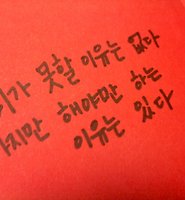 가 못할 이유는 없아
지만 해야만 하는
이유는 있다